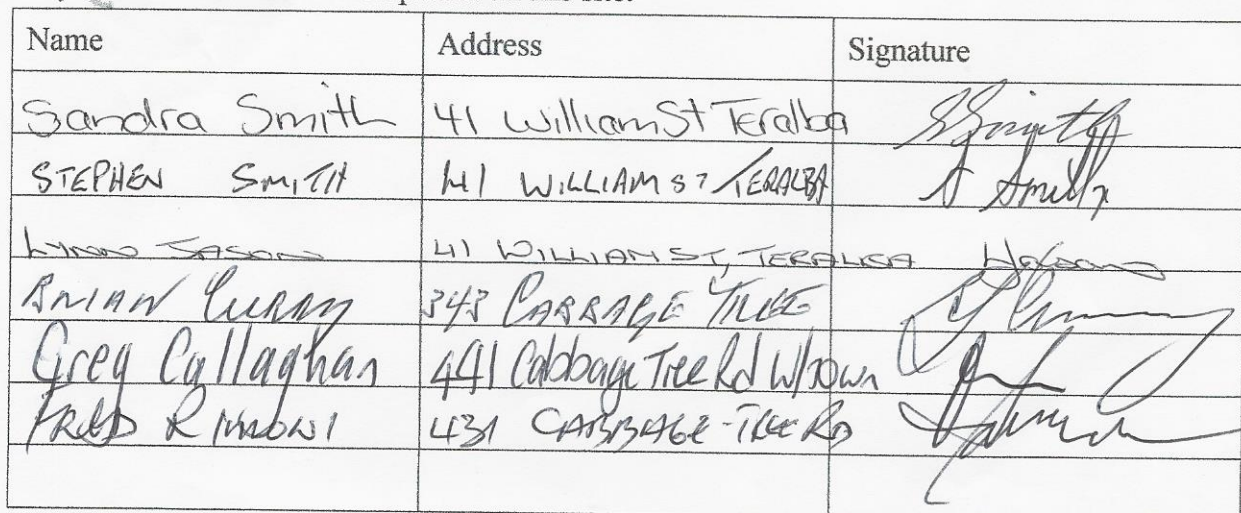 Name Address Signature
Sandra Smith 41 William St Teralba SSmith
STEPHEN SMITH 41 WILLIAM ST TERALBA S Smith
LYNN JASON 41 WILLIAM ST, TERALBA
BRIAN CURRY 343 CABBAGE TREE
Greg Callaghan 441 Cabbage Tree Rd W/town
FRED 431 CABBAGE-TREE RD